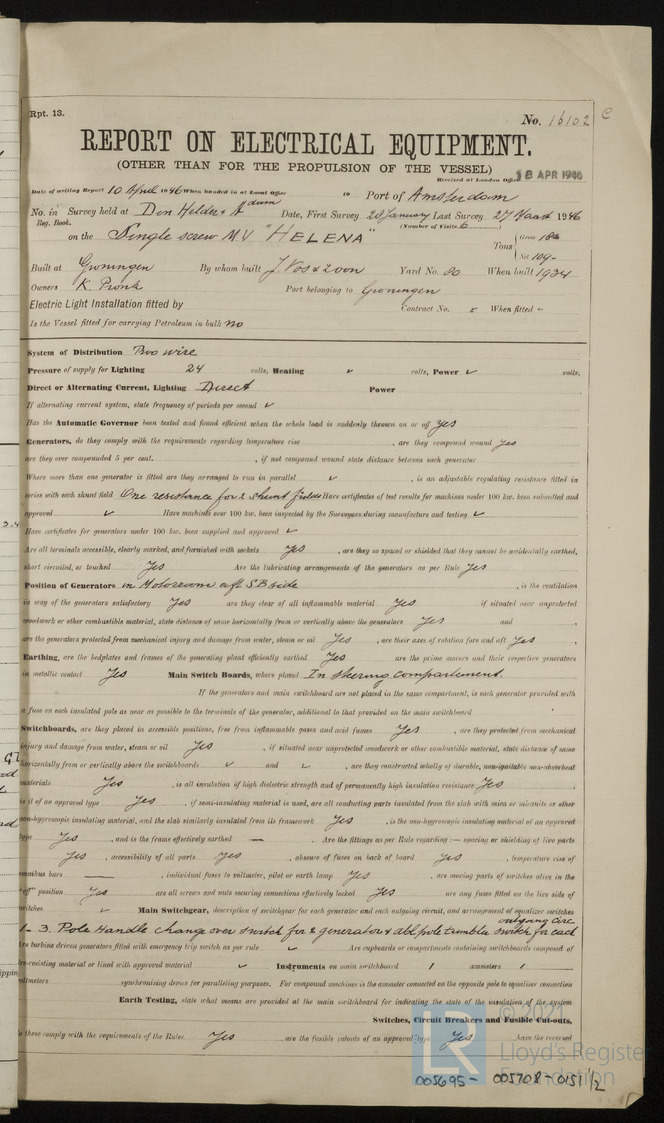 Rpt. 13.
No. 16102
C
REPORT ON ELECTRICAL EQUIPMENT.
(OTHER THAN FOR THE PROPULSION OF THE VESSEL)
Received at London Office 18 APR 1946
Date of writing Report 10 April 1946 When handed in at Local Office to Port of Amsterdam
No. in Survey held at Den Helder & A'dam Date, First Survey 28 January Last Survey 27 Maart 1946
Reg. Book. (Number of Visits 6)
on the Single screw MV "HELENA" Tons Gross 186 Net 109
Built at Groningen By whom built J. Vos & Zoon Yard No. 80 When built 1934
Owners K. Pronk Port belonging to Groningen
Electric Light Installation fitted by Contract No. - When fitted -
Is the Vessel fitted for carrying Petroleum in bulk no
System of Distribution Two wire
Pressure of supply for Lighting 24 volts, Heating ✓ volts, Power ✓ volts.
Direct or Alternating Current, Lighting Direct Power
If alternating current system, state frequency of periods per second ✓
Has the Automatic Governor been tested and found efficient when the whole load is suddenly thrown on or off Yes
Generators, do they comply with the requirements regarding temperature rise , are they compound wound Yes
are they over compounded 5 per cent. , if not compound wound state distance between each generator
Where more than one generator is fitted are they arranged to run in parallel ✓ , is an adjustable regulating resistance fitted in
series with each shunt field One resistance for 2 shunt fields Have certificates of test results for machines under 100 kw. been submitted and
approved ✓ Have machines over 100 kw. been inspected by the Surveyors during manufacture and testing ✓
Have certificates for generators under 100 kw. been supplied and approved ✓
Are all terminals accessible, clearly marked, and furnished with sockets Yes , are they so spaced or shielded that they cannot be accidentally earthed,
short circuited, or touched Yes Are the lubricating arrangements of the generators as per Rule Yes
Position of Generators in Motorroom aft SB side , is the ventilation
in way of the generators satisfactory Yes are they clear of all inflammable material Yes if situated near unprotected
woodwork or other combustible material, state distance of same horizontally from or vertically above the generators Yes and ,
are the generators protected from mechanical injury and damage from water, steam or oil Yes , are their axes of rotation fore and aft Yes
Earthing, are the bedplates and frames of the generating plant efficiently earthed Yes are the prime movers and their respective generators
in metallic contact Yes Main Switch Boards, where placed In steering compartment.
If the generators and main switchboard are not placed in the same compartment, is each generator provided with
a fuse on each insulated pole as near as possible to the terminals of the generator, additional to that provided on the main switchboard
Switchboards, are they placed in accessible positions, free from inflammable gases and acid fumes Yes , are they protected from mechanical
injury and damage from water, steam or oil Yes , if situated near unprotected woodwork or other combustible material, state distance of same
horizontally from or vertically above the switchboards ✓ and ✓ , are they constructed wholly of durable, non-ignitable non-absorbent
materials Yes , is all insulation of high dielectric strength and of permanently high insulation resistance Yes
is it of an approved type Yes , if semi-insulating material is used, are all conducting parts insulated from the slab with mica or micanite or other
non-hygroscopic insulating material, and the slab similarly insulated from its framework Yes , is the non-hygroscopic insulating material of an approved
type Yes , and is the frame effectively earthed — Are the fittings as per Rule regarding :— spacing or shielding of live parts
Yes , accessibility of all parts Yes , absence of fuses on back of board Yes , temperature rise of
omnibus bars — , individual fuses to voltmeter, pilot or earth lamp Yes , are moving parts of switches alive in the
"off" position Yes are all screws and nuts securing connections effectively locked Yes are any fuses fitted on the live side of
switches ✓ Main Switchgear, description of switchgear for each generator and each outgoing circuit, and arrangement of equalizer switches
outgoing circ
1-3. Pole Handle change over switch for 2 generators & dbl pole tumbler switch for each
Are turbine driven generators fitted with emergency trip switch as per rule ✓ Are cupboards or compartments containing switchboards composed of
fire-resisting material or lined with approved material ✓ Instruments on main switchboard 1 ammeters 1
voltmeters synchronising device for paralleling purposes. For compound machines is the ammeter connected on the opposite pole to equaliser connection
Earth Testing, state what means are provided at the main switchboard for indicating the state of the insulation of the system
Switches, Circuit Breakers and Fusible Cut-outs,
do these comply with the requirements of the Rules Yes , are the fusible cutouts of an approved type Yes , have the reversed
© 2021
LR
Lloyd's Register
Foundation
005695 - 005708 - 0151 1/2